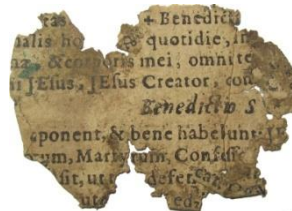 + Benedict
nalis ho quotidie,
næ, & corporis mei, omni te
si JEsus, JEsus Creator, con
Benedictio S
ponent, & bene habebunt
rum, Martyrum, Confess
sit, ut defer
ut ed